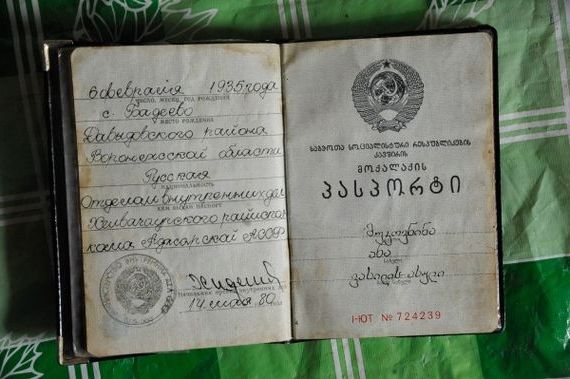 6 февраля 1935 года
число, месяц, год рождения
с. Бадеево
место рождения
Давыдовского района
Воронежской области
Русская
национальность
Отделом внутренних дел
кем выдан паспорт
Хелвачаурского райиспол
кома Аджарской АССР
14 мая 80
საბჭოთა სოციალისტური რესპუბლიკების
კავშირის
მოქალაქის
ᲞᲐᲡᲞᲝᲠᲢᲘ
ანა
სახელი
ვასილის ასული
I-ЮТ № 724239